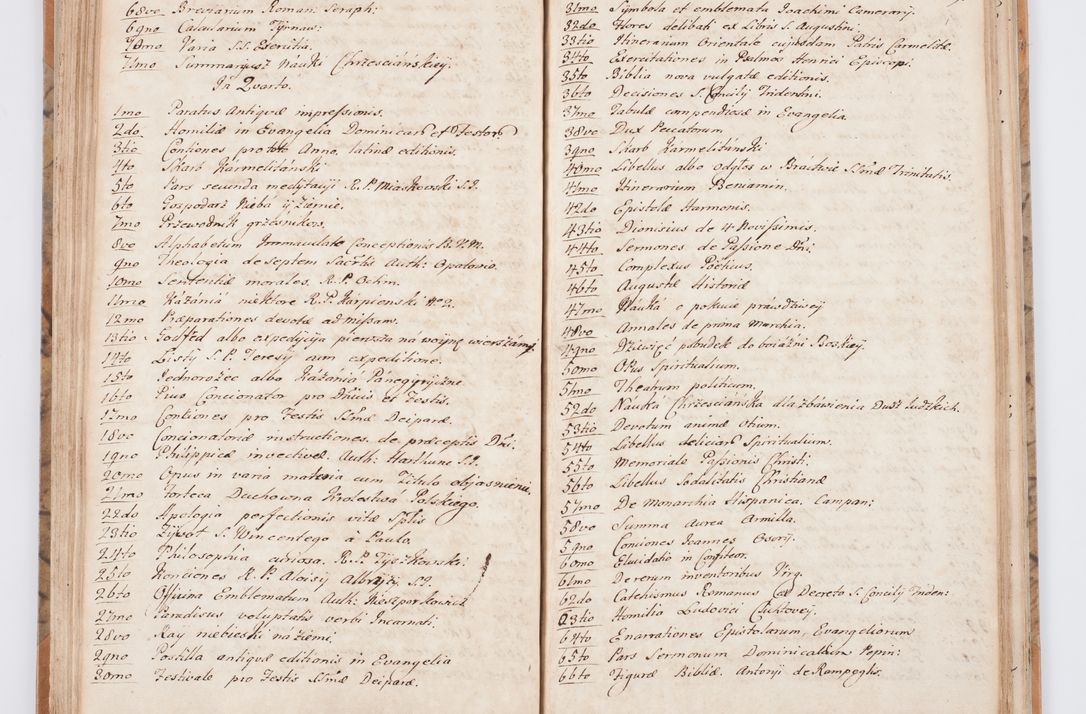 68vo Breviarium Roman: Seraph:
69no Calendarium Tyrnav:
70mo Varia S.S. Exercitia.
71mo Summaryusz Nauki Chrzesciánskiey.
In Quarto.
1mo Paratus Antiquæ impressionis.
2do Homiliæ in Evangelia Dominicar et Festor
3tio Contiones pro toto Anno, latinæ editionis.
4to Skarb Karmelitánski
5to Pars secunda medytacyi R.P. Miaskowski S.J.
6to Gospodarz Nieba ÿ Ziemie.
7mo Przewodnik grzesników.
8vo Alphabetum Immaculatæ Conceptionis B.V.M.
9no Theologia de Septem Sacrtis Auth: Opatovio.
10mo Sententiæ morales. R.P. Ochm.
11mo Kázánia niektore R.P. Karpienski No 2.
12mo Præparationes devotæ ad missam.
13tio Goffred albo expedycyia pierwsza ná woÿnę wierszámi
14to Listy S.P. Teresÿ cum expeditione.
15to Jednorożec albo Kázániá Pánegyryczne
16to Pius Concionator pro Dnicis et Festis.
17mo Contiones pro Festis SSmæ Deiparæ.
18vo Concionatoriæ instructiones de præceptis Dni.
19no Philippicæ invectivæ. Auth:
20mo Opus in varia materia cum Titulo objasnienie
21mo Forteca Duchowna Krolestwa Polskiego.
22do Apologia perfectionis vitæ Splis
23tio Zÿwot S. Wincentego à Paulo.
24to Philosophia curiosa. R.P. Tyszkowski:
25to Konciones R.P. Aloisÿ Albrizÿ S.J.
26to Officina Emblematum Auth: Nieszporkowicz
27mo Paradisus voluptatis verbi Incarnati.
28vo Ray niebieski ná ziemi.
29no Postilla antiquæ editionis in Evangelia
30mo Festivale pro Festis SSmæ Deiparæ.
31mo Symbola et emblemata Joachimi Camerarÿ.
32do Flores delibati ex Libris S. Augustini.
33tio Itinerarium Orientale cujusdam Patris Carmelitæ.
34to Exercitationes in Psalmos Henrici Episcopi.
35to Biblia nova vulgatæ editionis.
36to Decisiones S. Concilÿ Tridentini.
37mo Tabulæ compendiosæ in Evangelia.
38vo Dux Peccatorum
39no Skarb Karmelitánski
40mo Libellus albo odpos w Bractwie SSmæ Trinitatis.
41mo Itinerarium Beniamin.
42do Epistolæ Harmonis.
43tio Dionisius de 4 Novissimis.
44to Sermones de Passione Dni:
45to Complexus Poëticus.
46to Augustæ Historiæ
47mo Náuká o pokucie práwdziwey
48vo Annales de prima Monchia.
49no Dziewięć pobudek do boiáźni Boskiey.
50mo Opus Spiritualium.
51mo Theatrum politicum.
52do Náuká Chrzesciáńska dla zbáwienia Dusz ludzkich.
53tio Devotum animæ otium.
54to Libellus deliciar Spiritualium.
55to Memoriale Passionis Christi.
56to Libellus Sodalitatis Christianæ
57mo De Monarchia Hispanica. Campan:
58vo Summa aurea Armilla.
59no Conciones Ioannes Osorÿ.
60mo Elucidatio in
61mo De rerum inventoribus Virg.
62do Catechismus Romanus Ca Decreto S. Concilÿ Triden:
63tio Homilia Ludovici
64to Enarrationes Epistolarum, Evangeliorum
65to Pars Sermonum Dominicalium Pepin:
66to Figuræ Bibliæ. Antonÿ de Rampoglis.